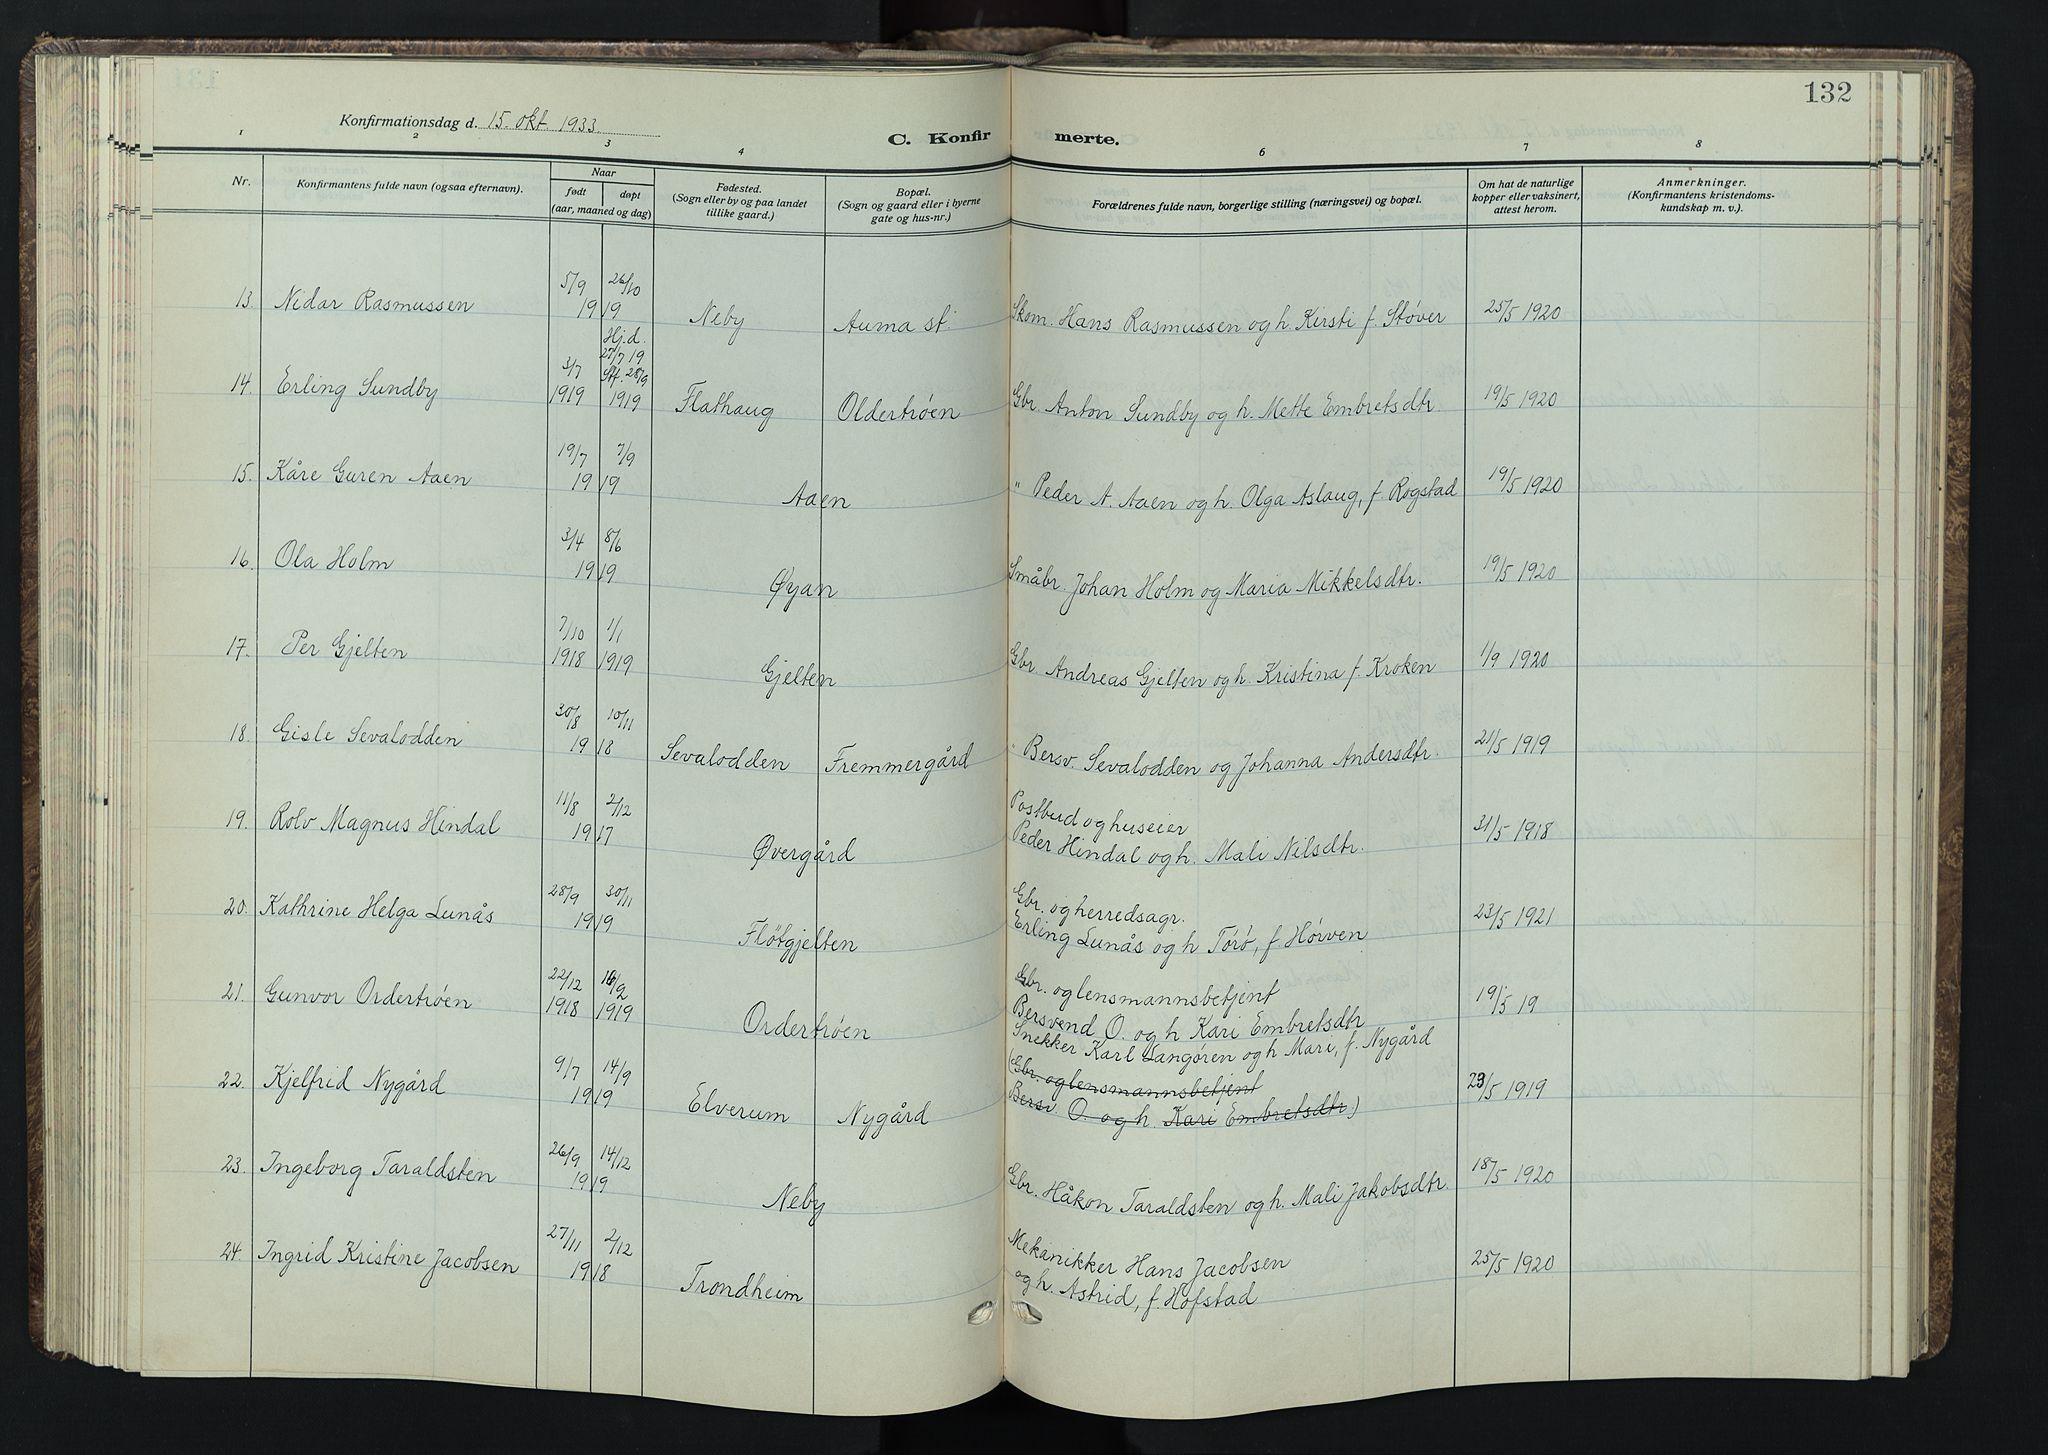 132
Konfirmationsdag d. 15. okt. 1933.
C. Konfirmerte.
1 2 3 4 6 7 8
Nr.
Konfirmantens fulde navn (ogsaa efternavn).
Naar
født
døpt
(aar, maaned og dag)
Fødested.
(Sogn eller by og paa landet
tillike gaard.)
Bopæl.
(Sogn og gaard eller i byerne
gate og hus-nr.)
Forældrenes fulde navn, borgerlige stilling (næringsvei) og bopæl.
Om hat de naturlige
kopper eller vaksinert,
attest herom.
Anmerkninger.
(Konfirmantens kristendoms-
kundskap m. v.).
13. Nidar Rasmussen 5/9 26/10 1919 Neby Auma st. Skom. Hans Rasmussen og h. Kirsti f. Støver 25/5 1920
14. Erling Sundby 3/7 1919 Hj.d. 27/7 19 Stf. 28/9 1919 Flathaug Oldertrøen Gbr. Anton Sundby og h. Mette Embretsdtr. 19/5 1920
15. Kåre Guren Aaen 19/7 7/9 1919 Aaen " Peder A. Aaen og h. Olga Aslaug, f. Rogstad 19/5 1920
16. Ola Holm 3/4 8/6 1919 Øyan Småbr. Johan Holm og Maria Mikkelsdtr. 19/5 1920
17. Per Gjelten 7/10 1918 1/1 1919 Gjelten Gbr. Andreas Gjelten og h. Kristina f. Kroken 1/9 1920
18. Gisle Sevalodden 30/8 10/11 1918 Sevalodden Fremmergård " Bersv. Sevalodden og Johanna Andersdtr. 21/5 1919
19. Rolv Magnus Hindal 11/8 2/12 1917 Øvergård Postbud og huseier
Peder Hindal og h. Mali Nilsdtr. 31/5 1918
20. Kathrine Helga Lunås 28/9 30/11 1919 Fløtgjelten Gbr. og herredsagr.
Erling Lunås og h Tórò, f. Hórven 23/5 1921
21. Gunvor Ordertrøen 22/12 1918 16/2 1919 Ordertrøen Gbr. og lensmannsbetjent
Bersvend O. og h Kari Embretsdtr 19/5 19
22. Kjelfrid Nygård 9/7 14/9 1919 Elverum Nygård Snekker Karl Langøren og h Mari, f. Nygård
(Gbr. og lensmannsbetjent
Bersv O. og h. Kari Embretsdtr) 23/5 1919
23. Ingeborg Taraldsten 26/9 14/12 1919 Neby Gbr. Håkon Taraldsten og h. Mali Jakobsdtr. 18/5 1920
24. Ingrid Kristine Jacobsen 27/11 2/12 1918 Trondheim Mekanikker Hans Jacobsen
og h. Astrid, f. Hofstad 25/5 1920